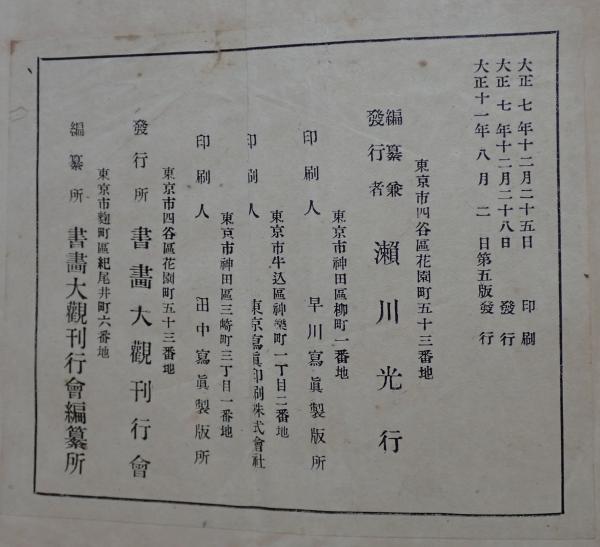 大正七年十二月二十五日 印刷
大正七年十二月二十八日 發行
大正十一年八月二日第五版發行
東京市四谷區花園町五十三番地
編纂兼
發行者 瀨川光行
東京市神田區柳町一番地
印刷人 早川寫眞製版所
東京市牛込區神樂町一丁目二番地
印刷人 東京寫眞印刷株式會社
東京市神田區三崎町三丁目一番地
印刷人 田中寫眞製版所
東京市四谷區花園町五十三番地
發行所 書畫大觀刊行會
東京市麴町區紀尾井町六番地
編纂所 書畫大觀刊行會編纂所